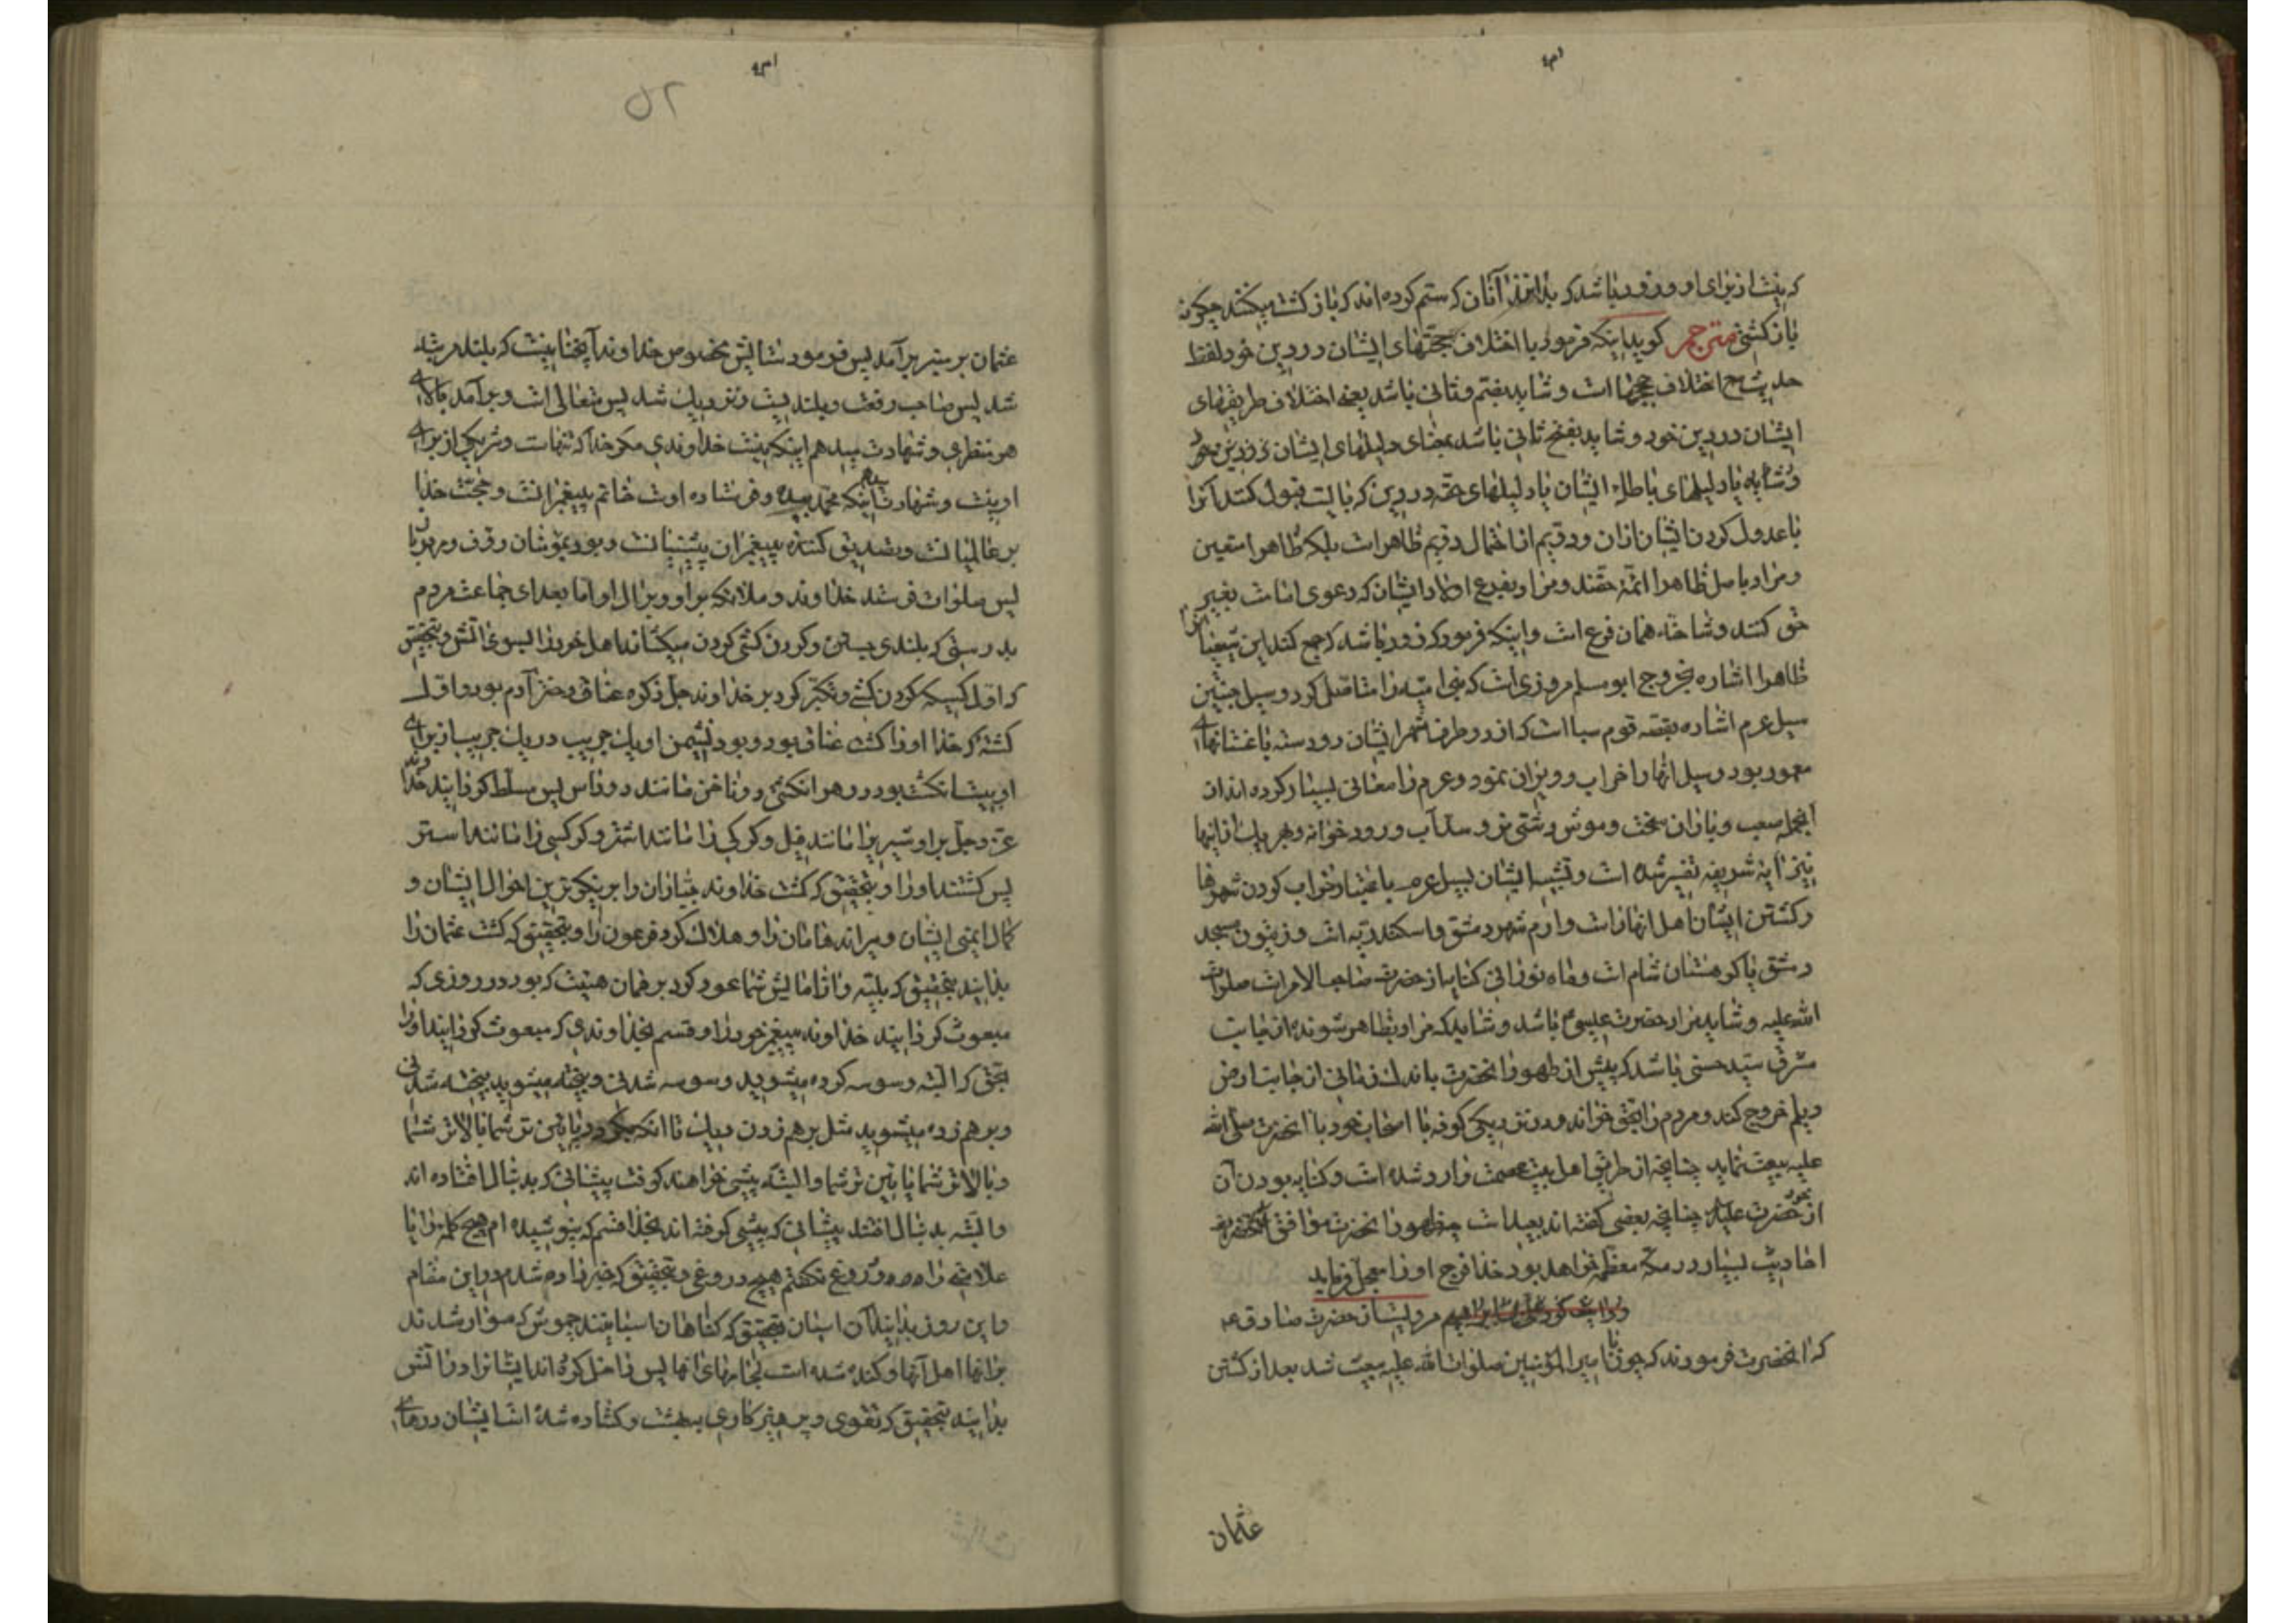 که نیست از برای او و زود باشد که بدانند آنان که ستم کرده اند که بازکشت میکنند چکونه
بازکشتی مترجم کوید اینکه فرمود با اختلاف حجتهای ایشان در دین خود لفظ
حدیث اختلاف حججها است و شاید بضم و ثانی باشد یعنی اختلاف طریقهای
ایشان در دین خود و شاید بفتح ثانی باشد بمعنای دلیلهای ایشان در دین خود
و شاید با دلیلهای باطله ایشان یا دلیلهای حقه در دین که بایست قبول کنند آنرا
با عدول کردن ایشان از آن و دقیم از احتمال دقیم ظاهر است بلکه ظاهرا متعین
و مراد باصل ظاهرا ائمه حقند و مراد بفرع اولاد ایشان که دعوی امامت بغیر
حق کنند و شاخه همان فرع است و اینکه فرمود که زود باشد که جمع کند این شیعیانرا
ظاهرا اشاره بخروج ابو مسلم مروزی است که بنی امیه را مستاصل کرد و سیل جنتین
سیل عرم اشاره بقصه قوم سبا است که از دو طرف شهر ایشان دو دسته باغستانهای
معمور بود و سیل آنها را خراب و ویران نمود و عرم را معانی بسیار کرده اند از
آنجمله صعب و باران سخت و موش دشتی نر و سد آب و رود خوانه و هر یک از اینها
نیز آیه شریفه تفسیر شده است و تشبیه ایشان بسیل عرم باعتبار خراب کردن شهرها
و کشتن ایشان اهل انها راست و ارم شهر دمشق و اسکندریه است و زیتون مسجد
دمشق یا کوهستان شام است و ماه نورانی کنایه از حضرت صاحب الامر است صلوات
الله علیه و شاید مراد حضرت عیسی باشد و شاید که مراد بظاهر شونده از جانب
مشرق سید حسنی باشد که پیش از ظهور آنحضرت باندک زمانی از جانب ارض
دیلم خروج کند و مردم را بحق خواند و در نزدیکی کوفه با اصحاب خود با آنحضرت صلی الله
علیه بیعت نماید چنانچه از طریق اهل بیت عصمت وارد شده است و کنایه بودن آن
از حضرت علیه چنانچه بعضی کفته اند بعید است چه ظهور آنحضرت موافق
احادیث بسیار در مکه معظمه خواهد بود خدا فرج او را معجل فرماید
مرویست از حضرت صادق
که آنحضرت فرمودند که چون با امیر المؤمنین صلوات الله علیه بیعت شد بعد از کشتن
عثمان
۵۲
عثمان بر منبر برآمد پس فرمود ستایش مخصوص خداوند آنچنانیست که بلند مرتبه
شد پس صاحب رفعت و بلندیست و نزدیک شد پس متعالی است و برآمد بالای
هر منظری و شهادت میدهم اینکه نیست خداوندی مکر خدا که تنهاست و شریکی از برای
او نیست و شهادت اینکه محمد بنده و فرستاده اوست خاتم پیغمبرانست و حجت خدا
بر عالمیانست و تصدیق کننده پیغمبران پیشینیانست و بود بمؤمنان رؤف و مهربان
پس صلوات فرستد خداوند و ملائکه بر او و بر آل او اما بعد ای جماعت مردم
بدرستی که بلندی جستن و کردن کشی کردن میکشاند اهل خود را بسوی آتش و بتحقیق
که اول کسیکه کردن کشی و تکبر کرد بر خداوند جل ذکره عناق دختر آدم بود و اول
کشته که خدا او را کشت عناق بود و بود نشیمن او یک جریب در یک جریب از برای
او بیست انکشت بود در هر انکشتی دو ناخن مانند دو داس پس مسلط کردانید خداوند
عز و جل بر او شیری را مانند فیل و کرکی را مانند شتر و کرکسی را مانند استر
پس کشتند او را و بتحقیق که کشت خداوند جباران را بر نیکوترین احوال ایشان و
کمال ایمنی ایشان و میراند هامان را و هلاک کرد فرعون را و بتحقیق که کشت عثمان را
بدانید بتحقیق که بلیه و آزمایش شما عود کرد بر همان هیئت که بود در روزی که
مبعوث کردانید خداوند پیغمبر خود را و قسم بخداوندی که مبعوث کردانید او را
بحق که البته وسوسه کرده میشوید وسوسه شدنی و بیخته میشوید بیخته شدنی
و بر هم زده میشوید مثل بر هم زدن دیک تا انکه بکردد پائین تر شما بالاتر شما
و بالاتر شما پائین تر شما و البته پیشی خواهند کرفت پیشانی که بدنبال افتاده اند
و البته بدنبال افتند پیشانی که پیشی کرفته اند بخدا قسم که نپوشیده ام هیچ کلمه را یا
علامتی را و دروغ نکفتم هیچ دروغی و بتحقیق که خبر داده شدم در این مقام
و این روز بدانید آن اسبان بتحقیق که کناهان اسبانیند چموش که سوار شدند
بر آنها اهل آنها و کنده شده است لجامهای انها پس داخل کرده اند ایشانرا در آتش
بدانید بتحقیق که تقوی و پرهیزکاری بهشت و کشاده شده است ایشان درهای